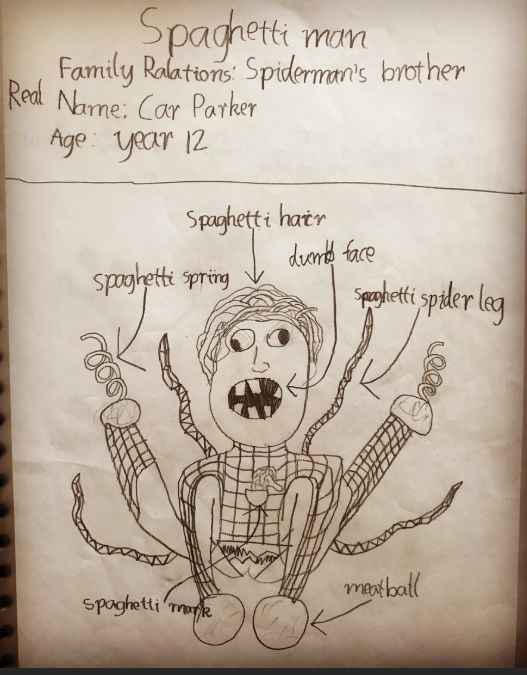 Spaghetti man
Family Ralations: Spiderman's brother
Real Name: Car Parker
Age: year 12
Spaghetti hair
dumb face
spaghetti spring
spaghetti spider leg
spaghetti mark
meatball